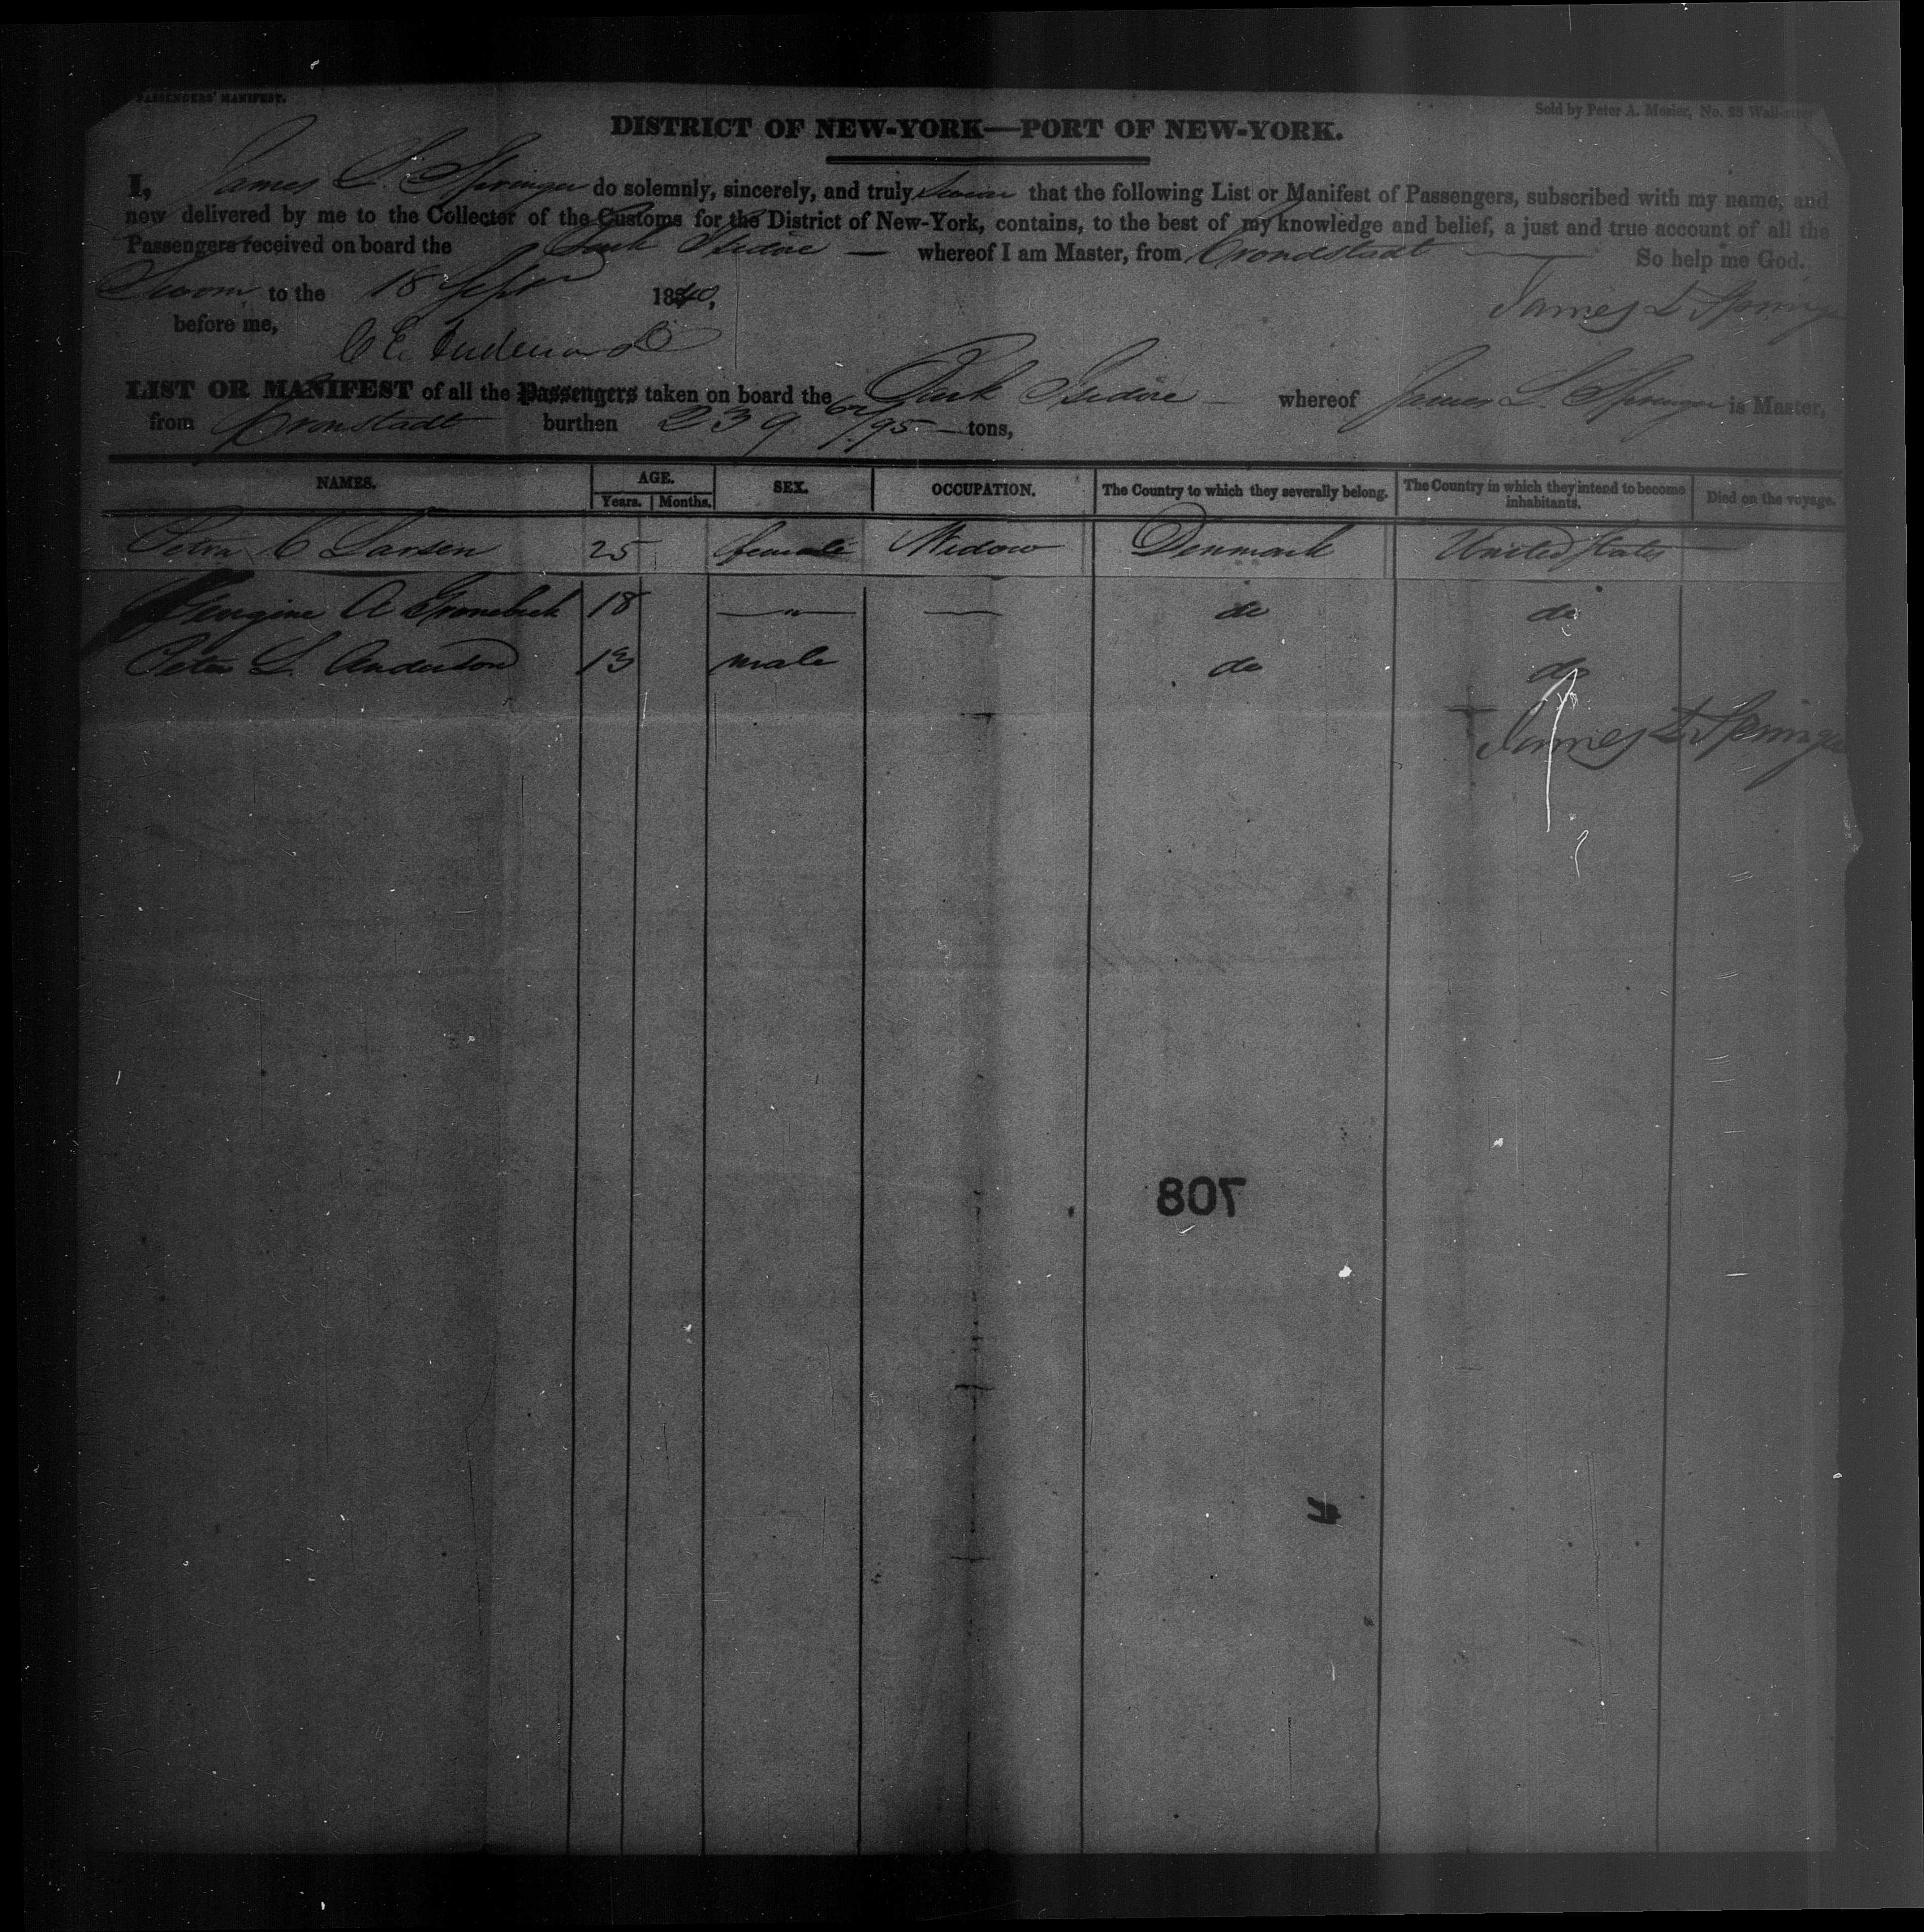 PASSENGERS' MANIFEST.
Sold by Peter A. Mesier, No. 28 Wall-
DISTRICT OF NEW-YORK—PORT OF NEW-YORK.
I, James L. Springer do solemnly, sincerely, and truly swear that the following List or Manifest of Passengers, subscribed with my name, and
now delivered by me to the Collector of the Customs for the District of New-York, contains, to the best of my knowledge and belief, a just and true account of all the
Passengers received on board the Bark Isidore — whereof I am Master, from Crondstadt So help me God.
Sworn to the 18 Sept 1840,
before me,
James L Springer
LIST OR MANIFEST of all the Passengers taken on board the Bark Isidore — whereof James L. Springer is Master,
from Cronstadt burthen 239 62/95 — tons,
NAMES. AGE. SEX. OCCUPATION. The Country to which they severally belong. The Country in which they intend to become inhabitants. Died on the voyage.
Years. Months.
Petra C Larsen 25 female Widow Denmark United States
A 18 — " — — do do
Peter L. Anderson 13 male do do
James L Springer
708